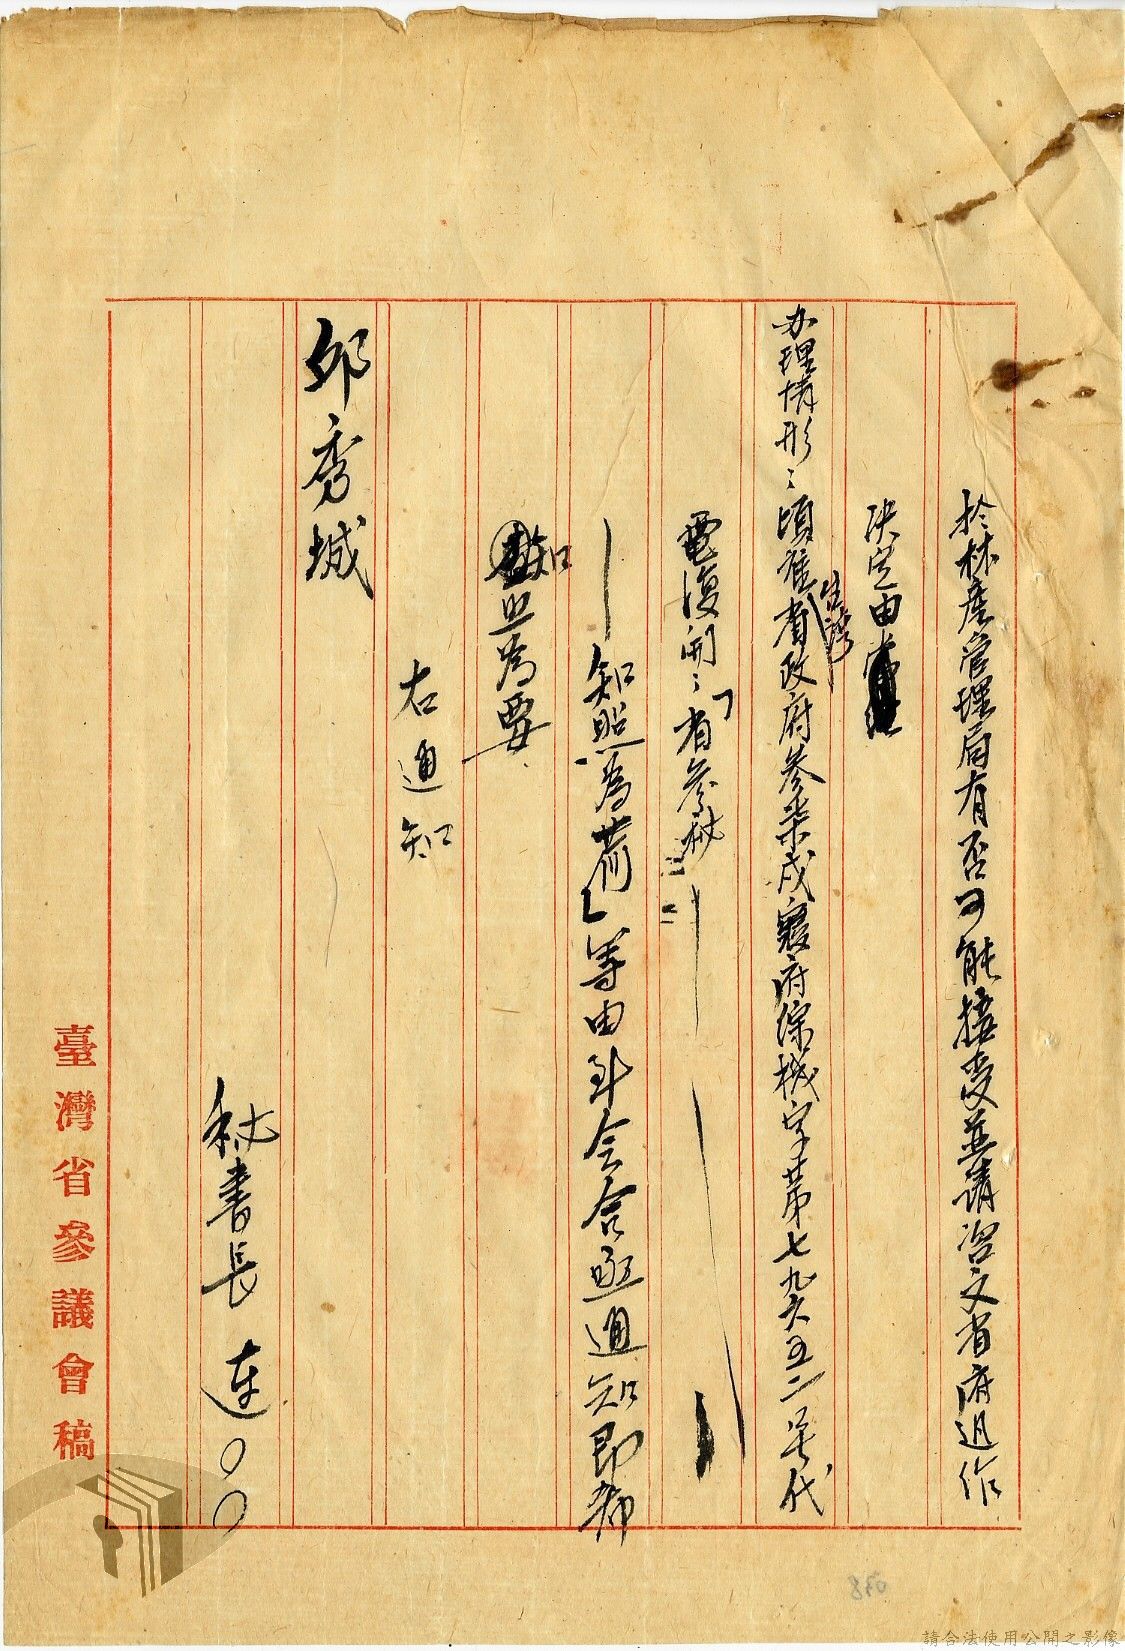 於林產管理局有否可能接受並請咨文省府迅作
決定由
办理情形：頃准台灣省政府參柒戌寢府綜機字第七九六五二號代
電復開：「省參秘
知照為荷」等由到會合函通知即希
知照為要
右通知
邱秀城
秘書長 連〇〇
臺灣省參議會稿
038
請合法使用公開之影像